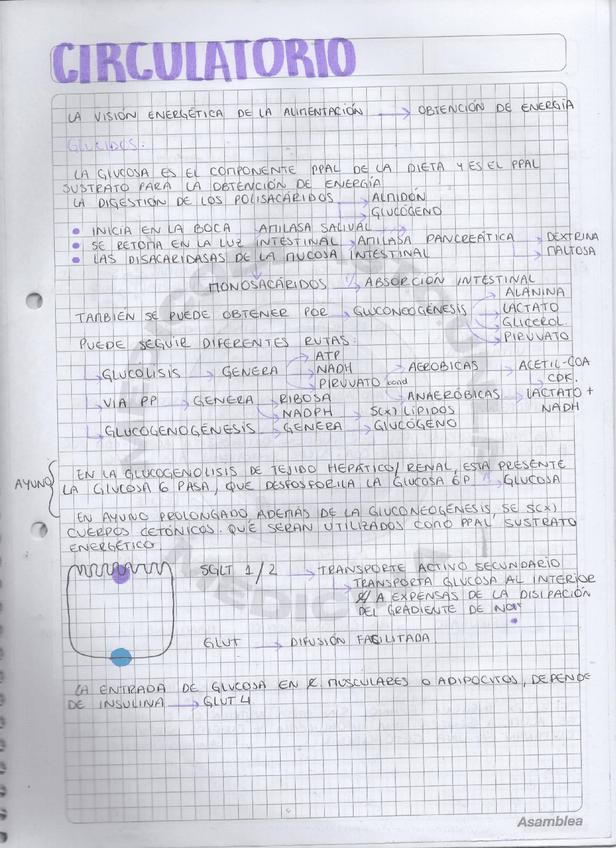 CIRCULATORIO
LA VISIÓN ENERGÉTICA DE LA ALIMENTACIÓN → OBTENCIÓN DE ENERGÍA
GLÚCIDOS:
LA GLUCOSA ES EL COMPONENTE PPAL DE LA DIETA Y ES EL PPAL
SUSTRATO PARA LA OBTENCIÓN DE ENERGÍA
LA DIGESTIÓN DE LOS POLISACÁRIDOS → ALMIDÓN
→ GLUCÓGENO
• INICIA EN LA BOCA → AMILASA SALIVAL →
• SE RETOMA EN LA LUZ INTESTINAL → AMILASA PANCREÁTICA → DEXTRINA
• LAS DISACARIDASAS DE LA MUCOSA INTESTINAL → MALTOSA
MONOSACÁRIDOS → ABSORCIÓN INTESTINAL
TAMBIÉN SE PUEDE OBTENER POR → GLUCONEOGÉNESIS → ALANINA
→ LACTATO
→ GLICEROL
→ PIRUVATO
PUEDE SEGUIR DIFERENTES RUTAS:
→ GLUCOLISIS → GENERA → ATP
→ NADH
→ PIRUVATO cond → AERÓBICAS → ACETIL-COA
→ CDK.
→ ANAERÓBICAS → LACTATO +
NADH
→ VIA PP → GENERA → RIBOSA
→ NADPH → S(x) LÍPIDOS
→ GLUCOGENOGÉNESIS → GENERA → GLUCÓGENO
AYUNO
EN LA GLUCOGENOLISIS DE TEJIDO HEPÁTICO/RENAL, ESTA PRESENTE
LA GLUCOSA 6 PASA, QUE DESFOSFORILA LA GLUCOSA 6P → GLUCOSA
EN AYUNO PROLONGADO ADEMÁS DE LA GLUCONEOGÉNESIS, SE S(x)
CUERPOS CETÓNICOS. QUE SERAN UTILIZADOS COMO PPAL SUSTRATO
ENERGÉTICO
SGLT 1/2 → TRANSPORTE ACTIVO SECUNDARIO
→ TRANSPORTA GLUCOSA AL INTERIOR
A EXPENSAS DE LA DISIPACIÓN
DEL GRADIENTE DE Na+
GLUT → DIFUSIÓN FACILITADA.
LA ENTRADA DE GLUCOSA EN MUSCULARES O ADIPOCITOS, DEPENDE
DE INSULINA → GLUT 4
Asamblea